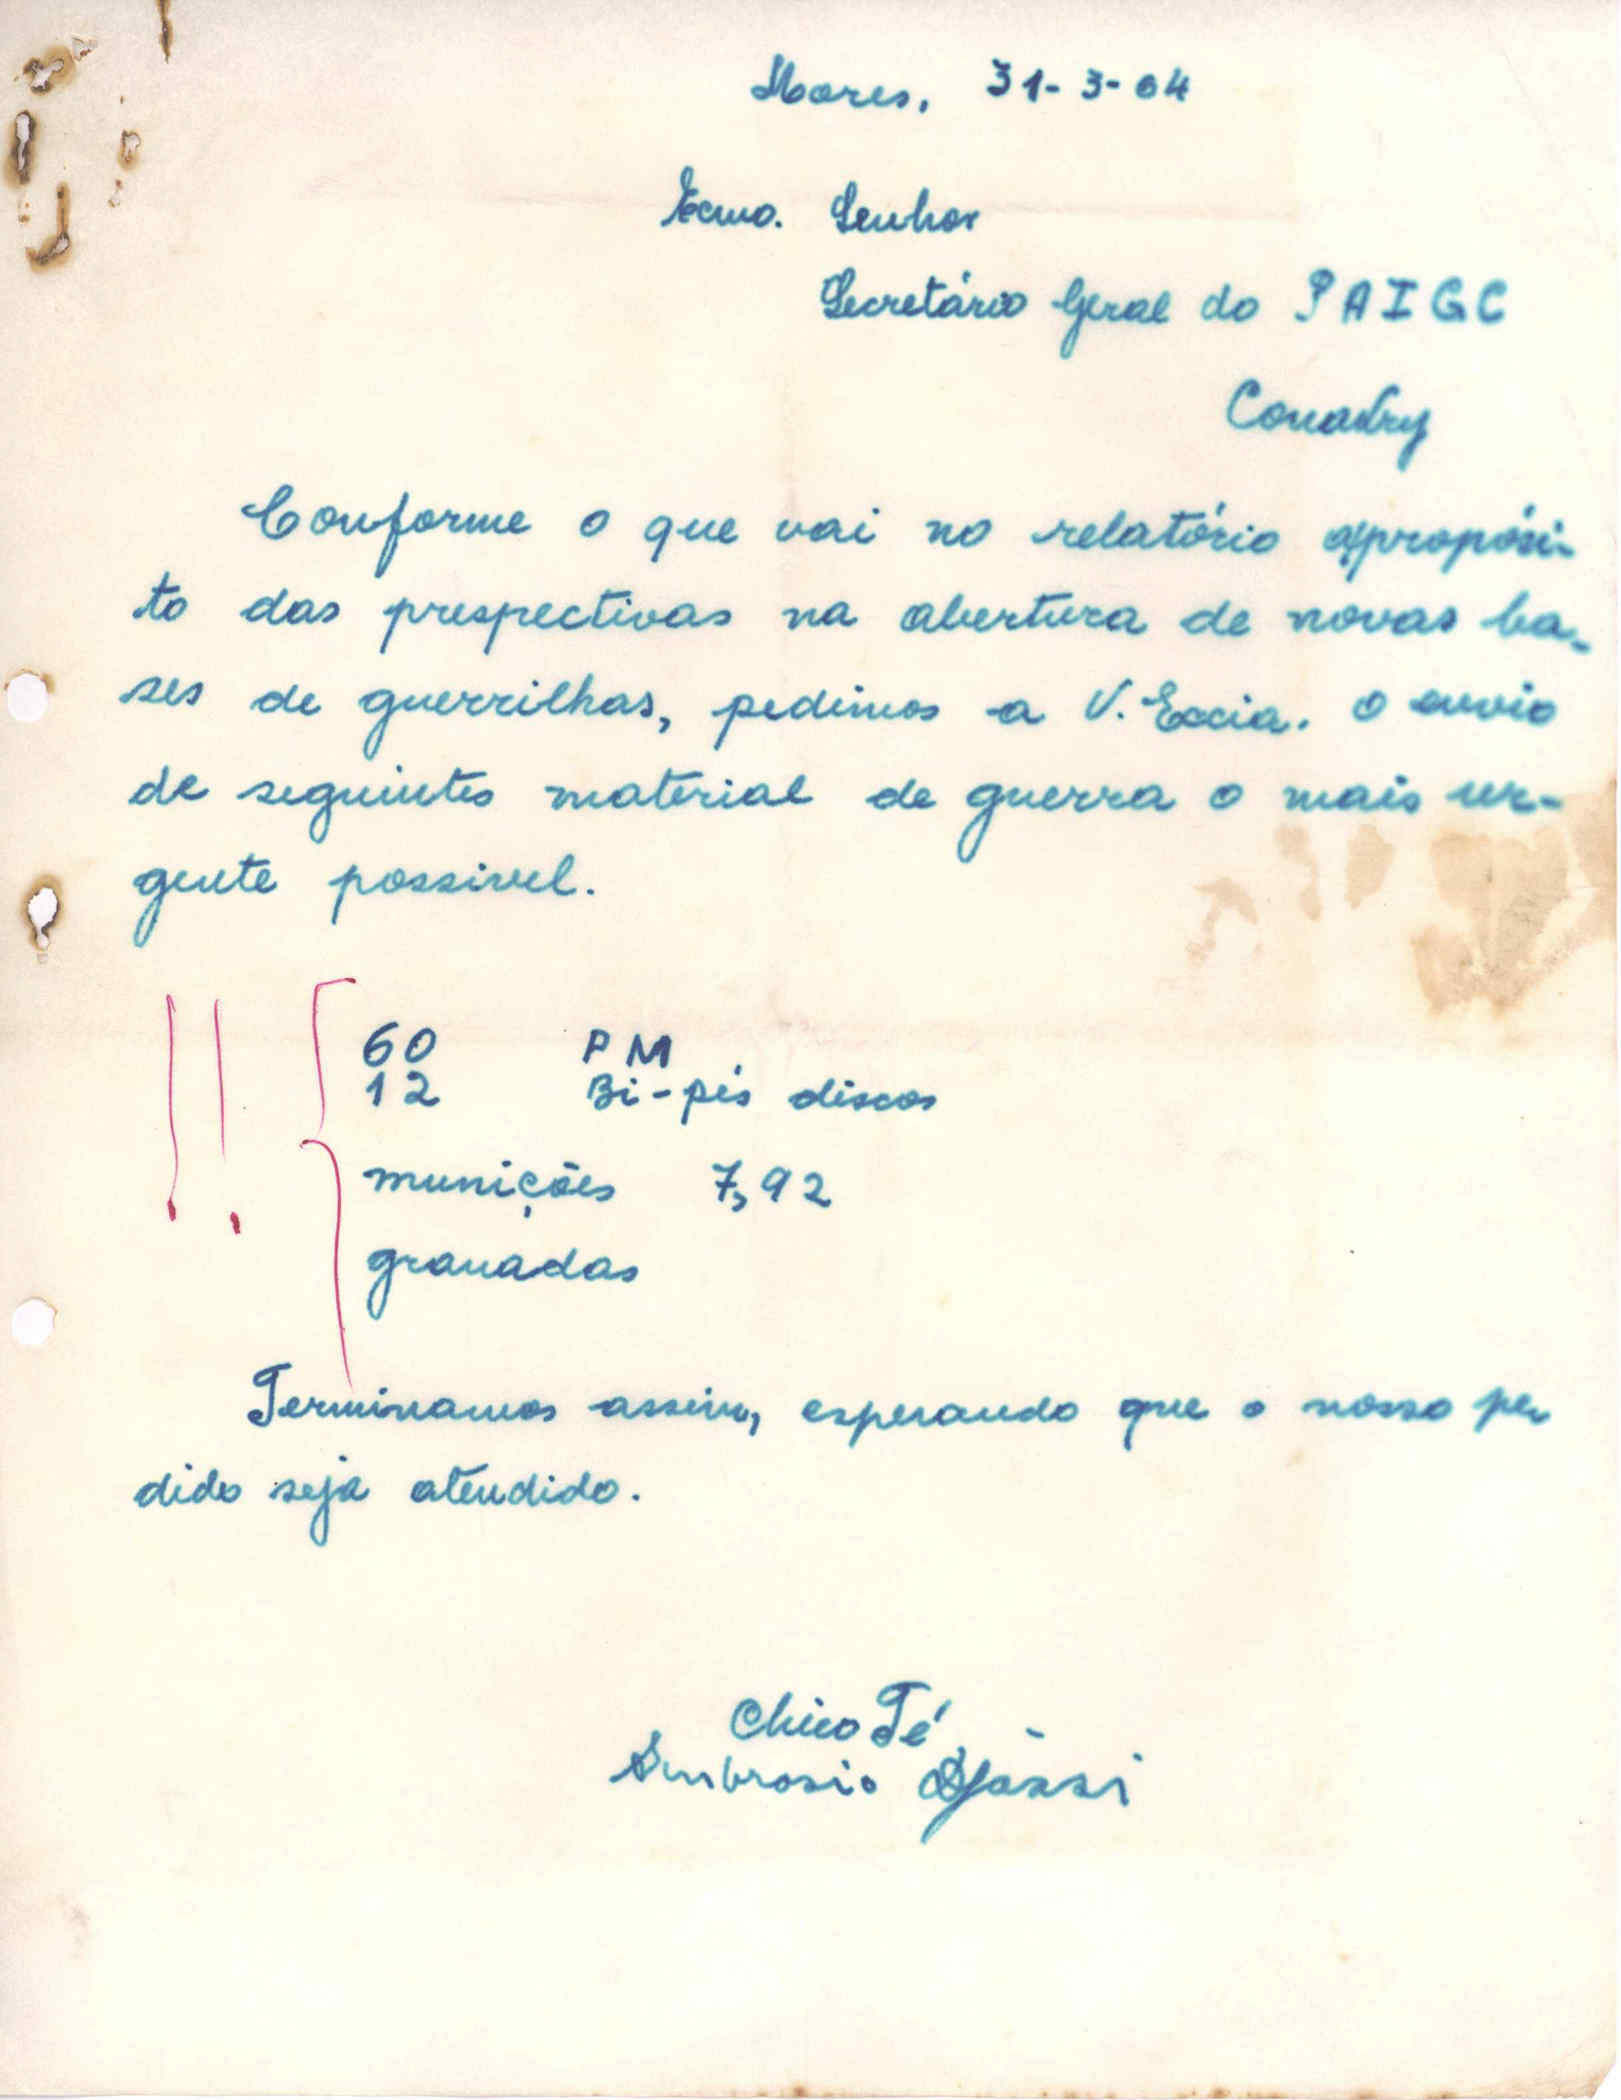 Mores, 31-3-64
Excmo. Senhor
Secretário Geral do PAIGC
Conakry
Conforme o que vai no relatório apropósi-
to das prespectivas na abertura de novas ba-
ses de guerrilhas, pedimos a V. Excia. o envio
de seguintes material de guerra o mais ur-
gente possivel.
!!
60 PM
12 Bi-pés discos
munições 7,92
granadas
Terminamos assim, esperando que o nosso pe
dido seja atendido.
Chico Té
Ambrosio Djassi